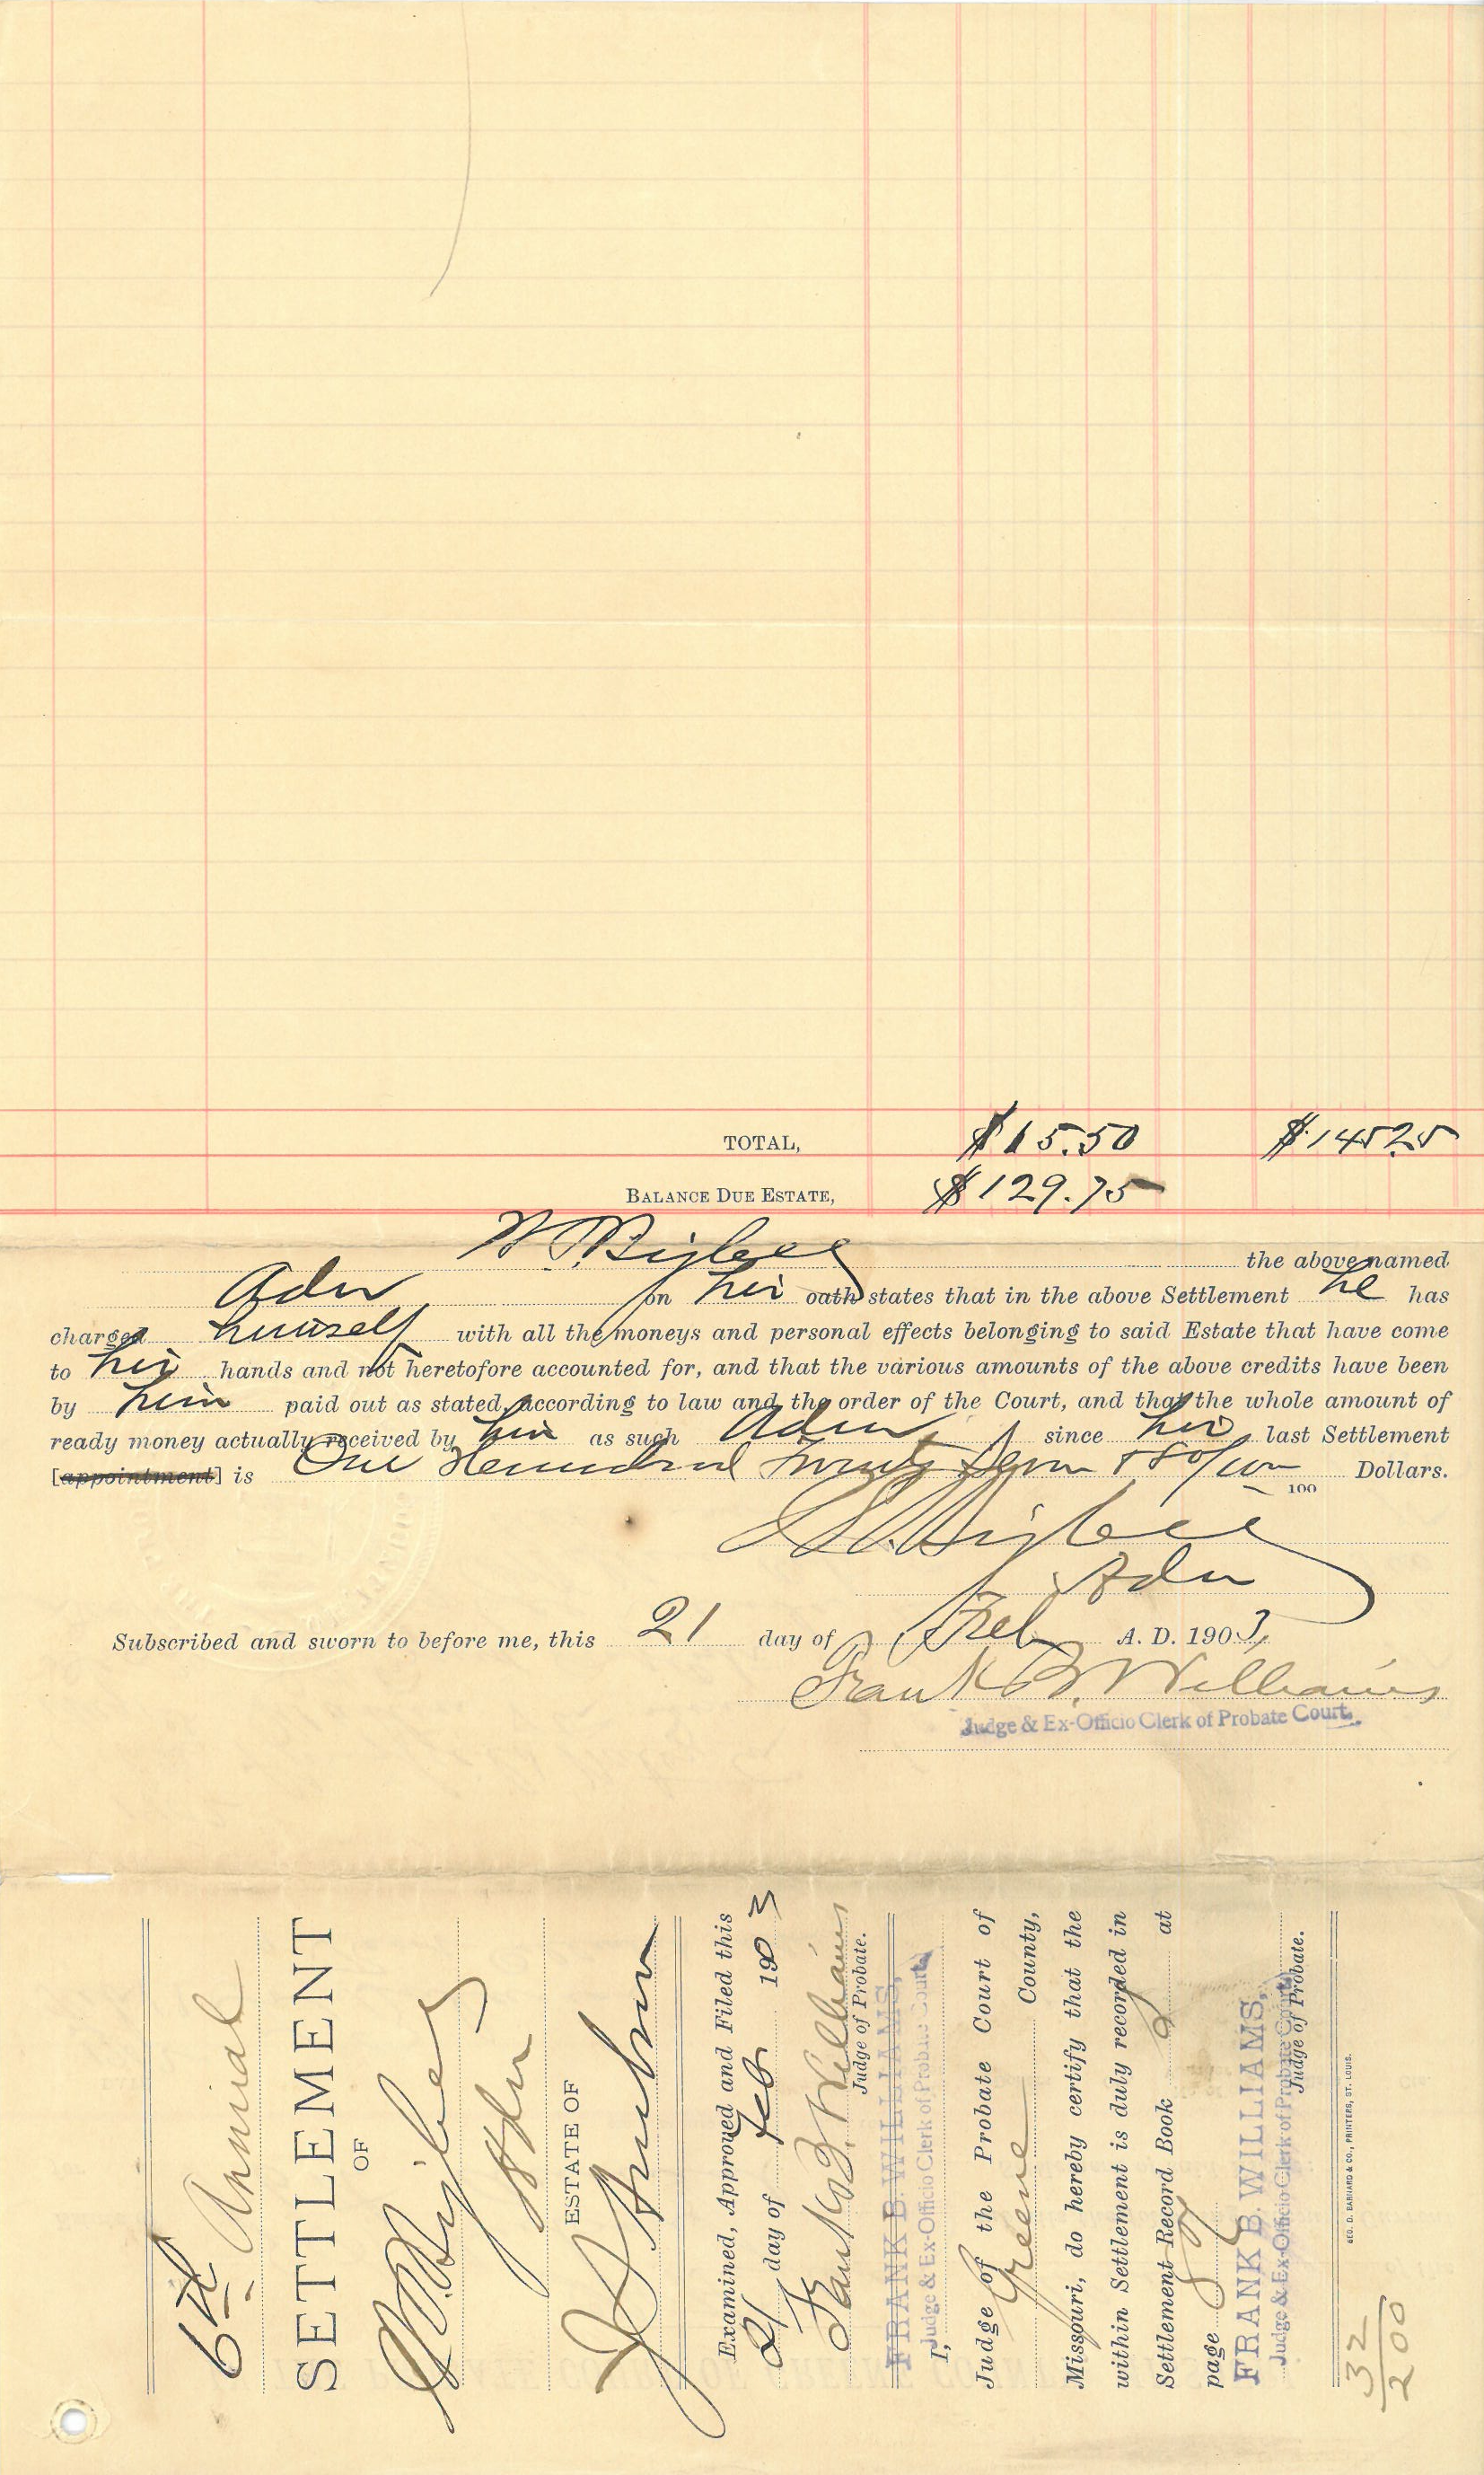 TOTAL, $15.50 $145.25
BALANCE DUE ESTATE, $129.75
Bigbee the above named
Adm on his oath states that in the above Settlement he has
charged himself with all the moneys and personal effects belonging to said Estate that have come
to his hands and not heretofore accounted for, and that the various amounts of the above credits have been
by him paid out as stated, according to law and the order of the Court, and that the whole amount of
ready money actually received by him as such Adm, since his last Settlement
[appointment] is One Hundred Twenty Seven & 80/100 100 Dollars.
Bigbee
Adm
Subscribed and sworn to before me, this 21 day of Feb A. D. 1903,
Frank B. Williams
Judge & Ex-Officio Clerk of Probate Court.
6th Annual
SETTLEMENT
OF
Bigbee
Adm
ESTATE OF
Examined, Approved and Filed this
21 day of Feb 1903
Frank B. Williams
Judge of Probate.
FRANK B. WILLIAMS,
Judge & Ex-Officio Clerk of Probate Court
I,
Judge of the Probate Court of
Greene County,
Missouri, do hereby certify that the
within Settlement is duly recorded in
Settlement Record Book at
page
FRANK B. WILLIAMS,
Judge & Ex-Officio Clerk of Probate Court
Judge of Probate.
GEO. D. BARNARD & CO., PRINTERS, ST. LOUIS.
32
200